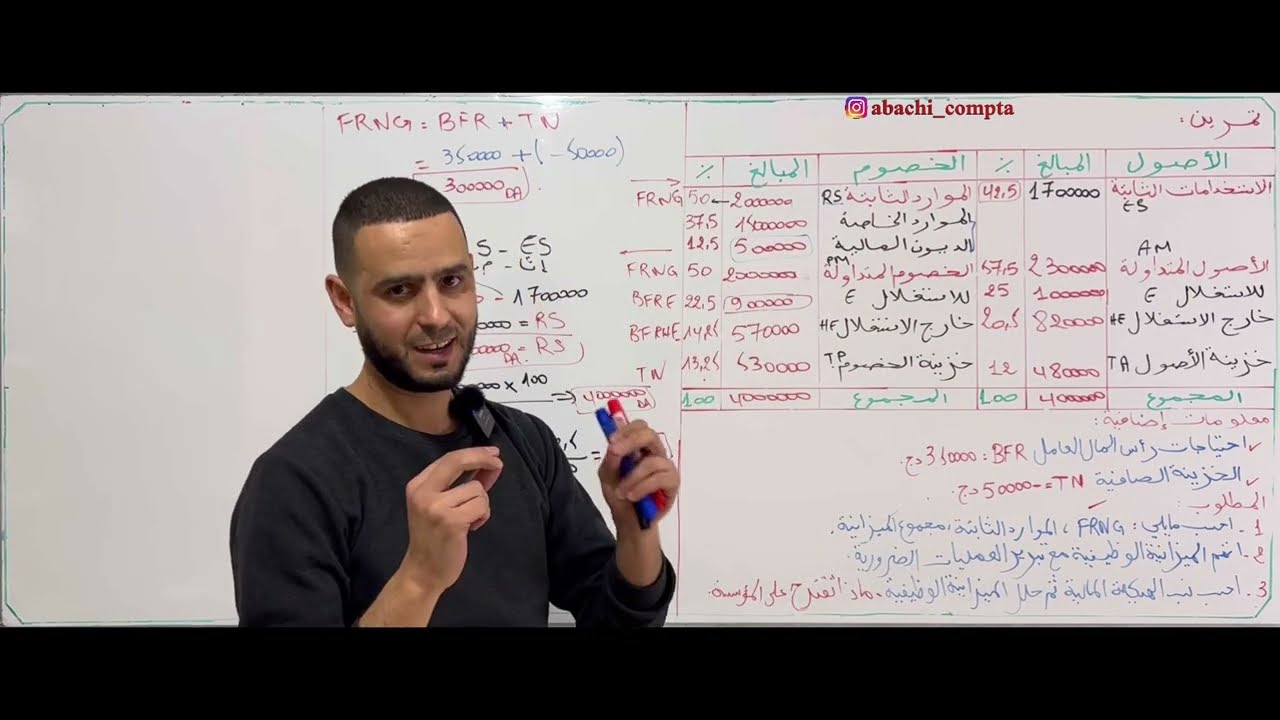 abachi_compta
تمرين:
الأصول المبالغ % الخصوم المبالغ %
الاستخدامات الثابتة ES 1700000 42,5 الموارد الثابتة RS 2000000 50 FRNG
الموارد الخاصة 1500000 37,5
الديون المالية 500000 12,5
الأصول المتداولة AM 2300000 57,5 الخصوم المتداولة PM 2000000 50 FRNG
للاستغلال E 1000000 25 للاستغلال E 900000 22,5 BFRE
خارج الاستغلال HE 820000 20,5 خارج الاستغلال HE 570000 14,25 BFRHE
خزينة الأصول TA 480000 12 خزينة الخصوم TP 530000 13,25 TN
المجموع 4000000 100 المجموع 4000000 100
معلومات إضافية:
احتياجات رأس المال العامل BFR: 350000 دج.
الخزينة الصافية TN = -50000 دج.
المطلوب:
1 - احسب مايلي: FRNG، الموارد الثابتة، مجموع الميزانية.
2 - اتمم الميزانية الوظيفية مع تبرير العمليات الضرورية.
3 - احسب نسب الهيكلة المالية ثم حلل الميزانية الوظيفية، ماذا تقترح على المؤسسة.
FRNG = BFR + TN
= 350000 + (-50000)
300000 DA
S - ES
- 1700000
= RS
DA = RS
x 100 => 4000000 DA